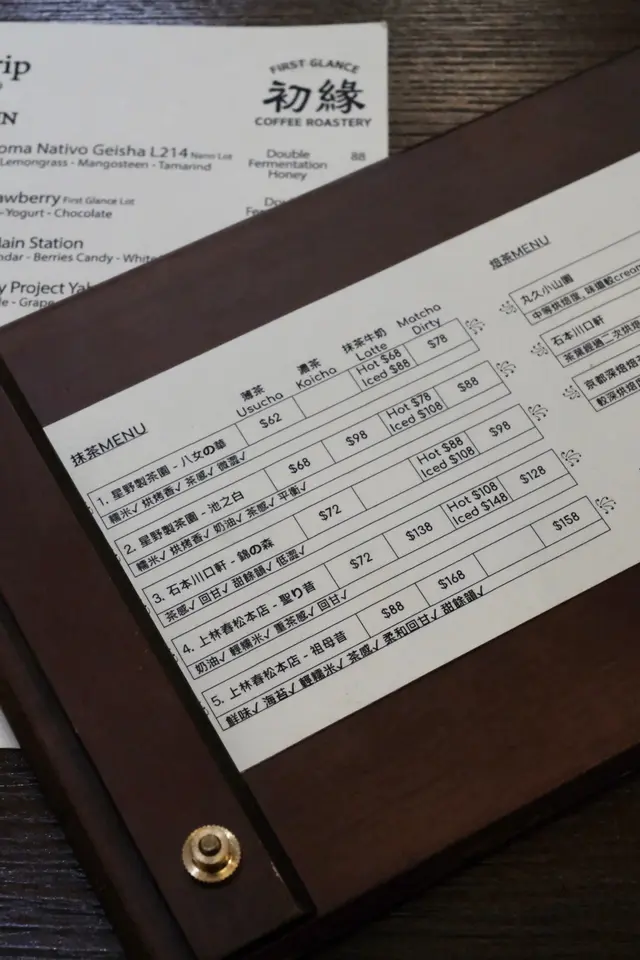 rip
FIRST GLANCE
初緣
COFFEE ROASTERY
oma Nativo Geisha L214 Nano Lot
Lemongrass - Mangosteen - Tamarind
Double
Fermentation
Honey
88
awberry First Glance Lot
Yogurt - Chocolate
ain Station
dar - Berries Candy - White
y Project
le - Grape
抹茶MENU
薄茶
Usucha
濃茶
Koicha
抹茶牛奶
Latte
Matcha
Dirty
1. 星野製茶園 - 八女の華
$62
Hot $68
Iced $88
$78
糯米✓ 烘烤香✓ 茶感✓ 微澀✓
2. 星野製茶園 - 池之白
$68
$98
Hot $78
Iced $108
$88
糯米✓ 烘烤香✓ 奶油✓ 茶感✓ 平衡✓
3. 石本川口軒 - 錦の森
$72
Hot $88
Iced $108
$98
茶感✓ 回甘✓ 甜餘韻✓ 低澀✓
4. 上林春松本店 - 聖り昔
$72
$138
Hot $108
Iced $148
$128
奶油✓ 輕糯米✓ 重茶感✓ 回甘✓
5. 上林春松本店 - 祖母昔
$88
$168
$158
鮮味✓ 海苔✓ 輕糯米✓ 茶感✓ 柔和回甘✓ 甜餘韻✓
焙茶MENU
丸久小山園
中等烘焙度, 味道較cream
石本川口軒
茶葉經過二次烘焙
京都深焙焙
較深烘焙